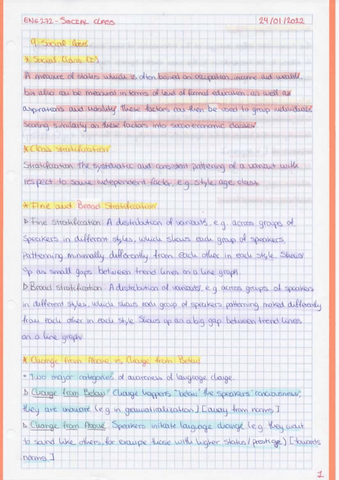 ENG 272 - SOCIAL CLASS 24/01/2022
9. Social Class
* Social Class (K)
A measure of status which is often based on occupation, income and wealth,
but also can be measured in terms of level of formal education, as well as
aspirations and mobility. These factors can then be used to group individuals
scoring similarly on these factors into socio-economic classes.
* Class stratification
Stratification: The systematic and consistent patterning of a variant with
respect to some independent factor, e.g. style, age, class.
* Fine and Broad Stratification
▷ Fine stratification: A distribution of variants, e.g. across groups of
speakers in different styles, which shows each group of speakers
patterning minimally differently from each other in each style. Shows
up as small gaps between trend lines on a line graph.
▷ Broad stratification: A distribution of variants, e.g. across groups of speakers
in different styles, which shows each group of speakers patterning marked differently
from each other in each style. Shows up as a big gap between trend lines
on a line graph.
* Change from Above vs Change from Below
- Two major categories of awareness of language change.
▷ Change from Below: Change happens "below" the speakers' consciousness,
they are unaware (e.g. in grammaticalization) [away from norms]
▷ Change from Above: Speakers initiate language change (e.g. they want
to sound like others, for example those with higher status/prestige) [towards
norms]
1